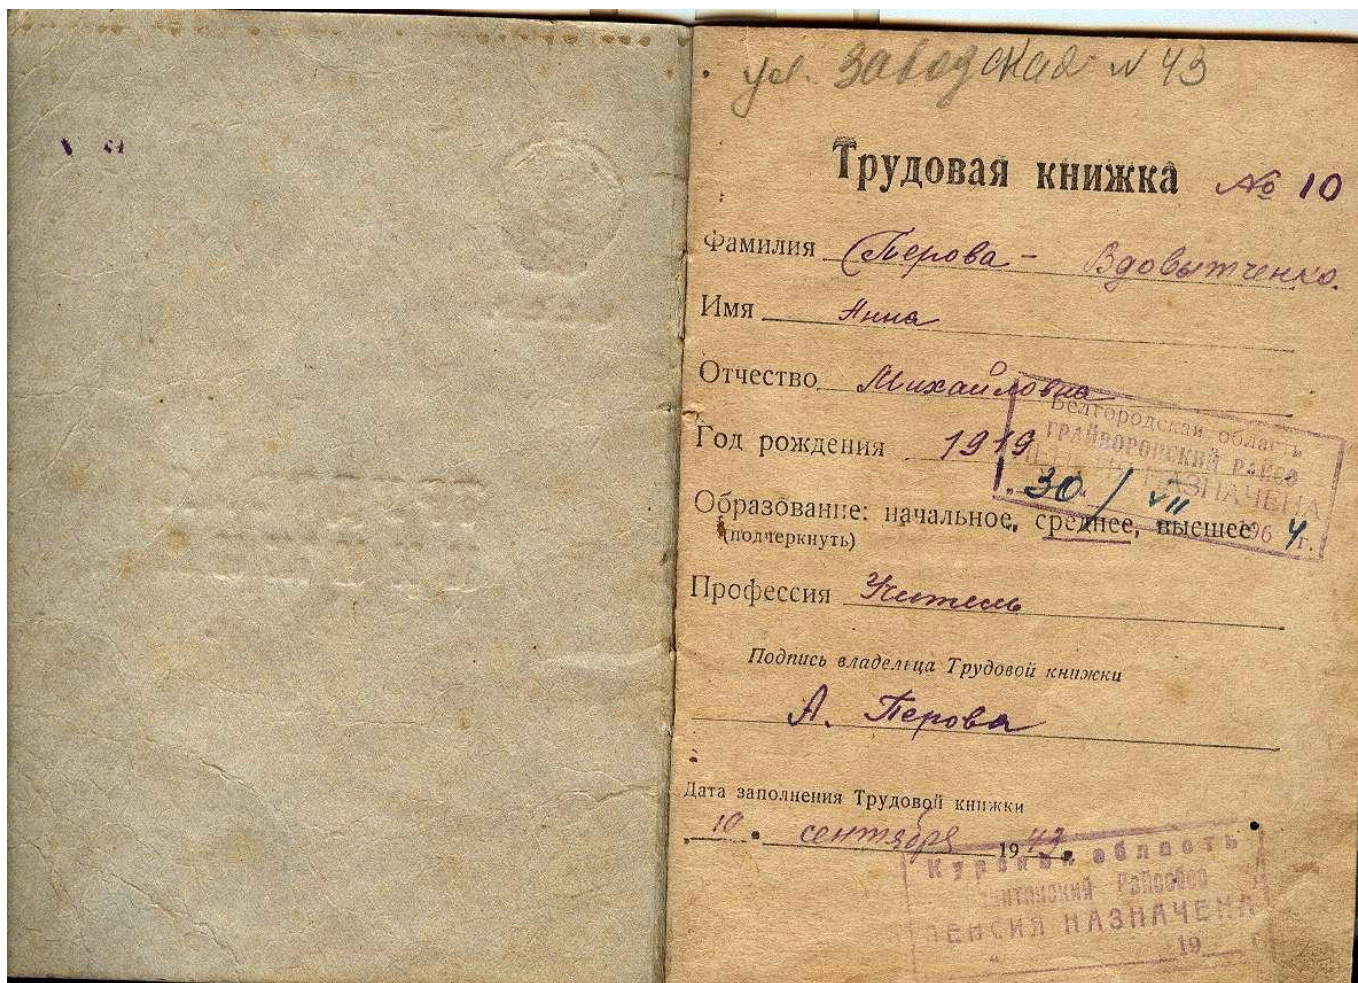 ул. Заводская N 43
Трудовая книжка № 10
Фамилия Перова - Вдовытченко.
Имя Анна
Отчество Михайловна
Год рождения 1919
Белгородская область
ГРАЙВОРОНСКИЙ РАЙСО
НАЗНАЧЕНА
30 / VII 1964 г.
Образование: начальное, среднее, высшее
(подчеркнуть)
Профессия Учитель
Подпись владельца Трудовой книжки
А. Перова
Дата заполнения Трудовой книжки
10 сентября 1943
Курская область
Райсобес
ПЕНСИЯ НАЗНАЧЕНА
19 г.